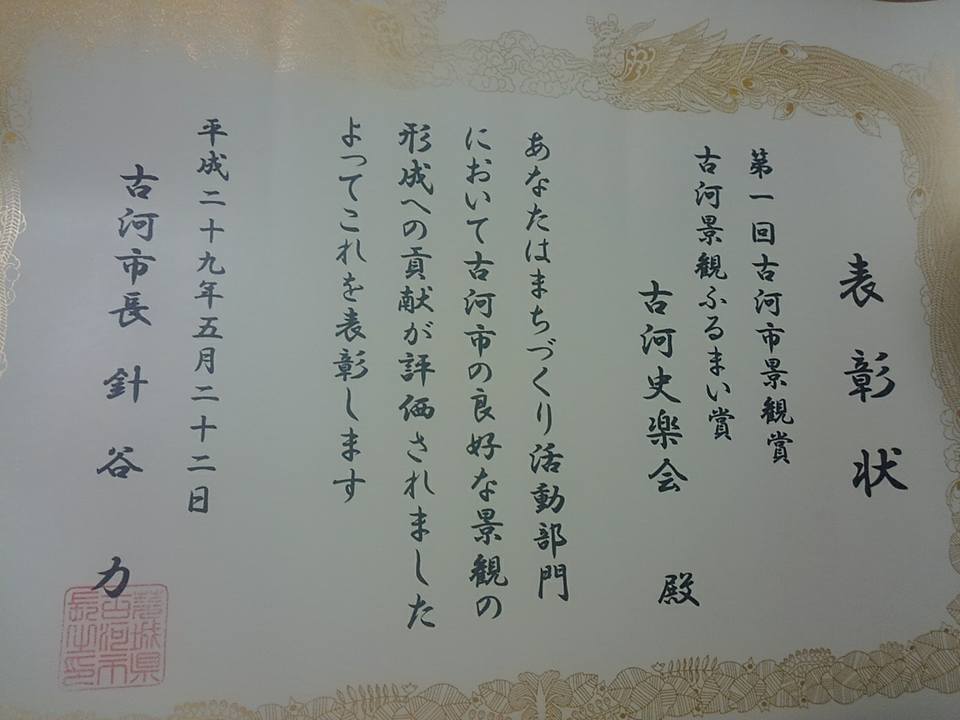 表彰状
第一回古河市景観賞
古河景観ふるまい賞
古河史楽会 殿
あなたはまちづくり活動部門
において古河市の良好な景観の
形成への貢献が評価されました
よってこれを表彰します
平成二十九年五月二十二日
古河市長 針谷 力
茨城県
古河市
長之印